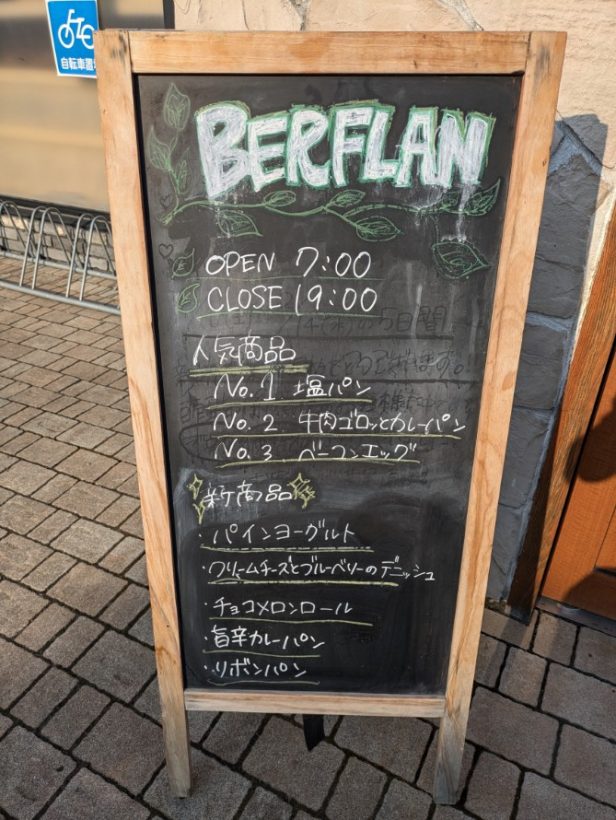 自転車置場
BERFLAN
OPEN 7:00
CLOSE 19:00
人気商品
No.1 塩パン
No.2 牛肉ゴロッとカレーパン
No.3 ベーコンエッグ
新商品
・パインヨーグルト
・クリームチーズとブルーベリーのデニッシュ
・チョコメロンロール
・旨辛カレーパン
・リボンパン